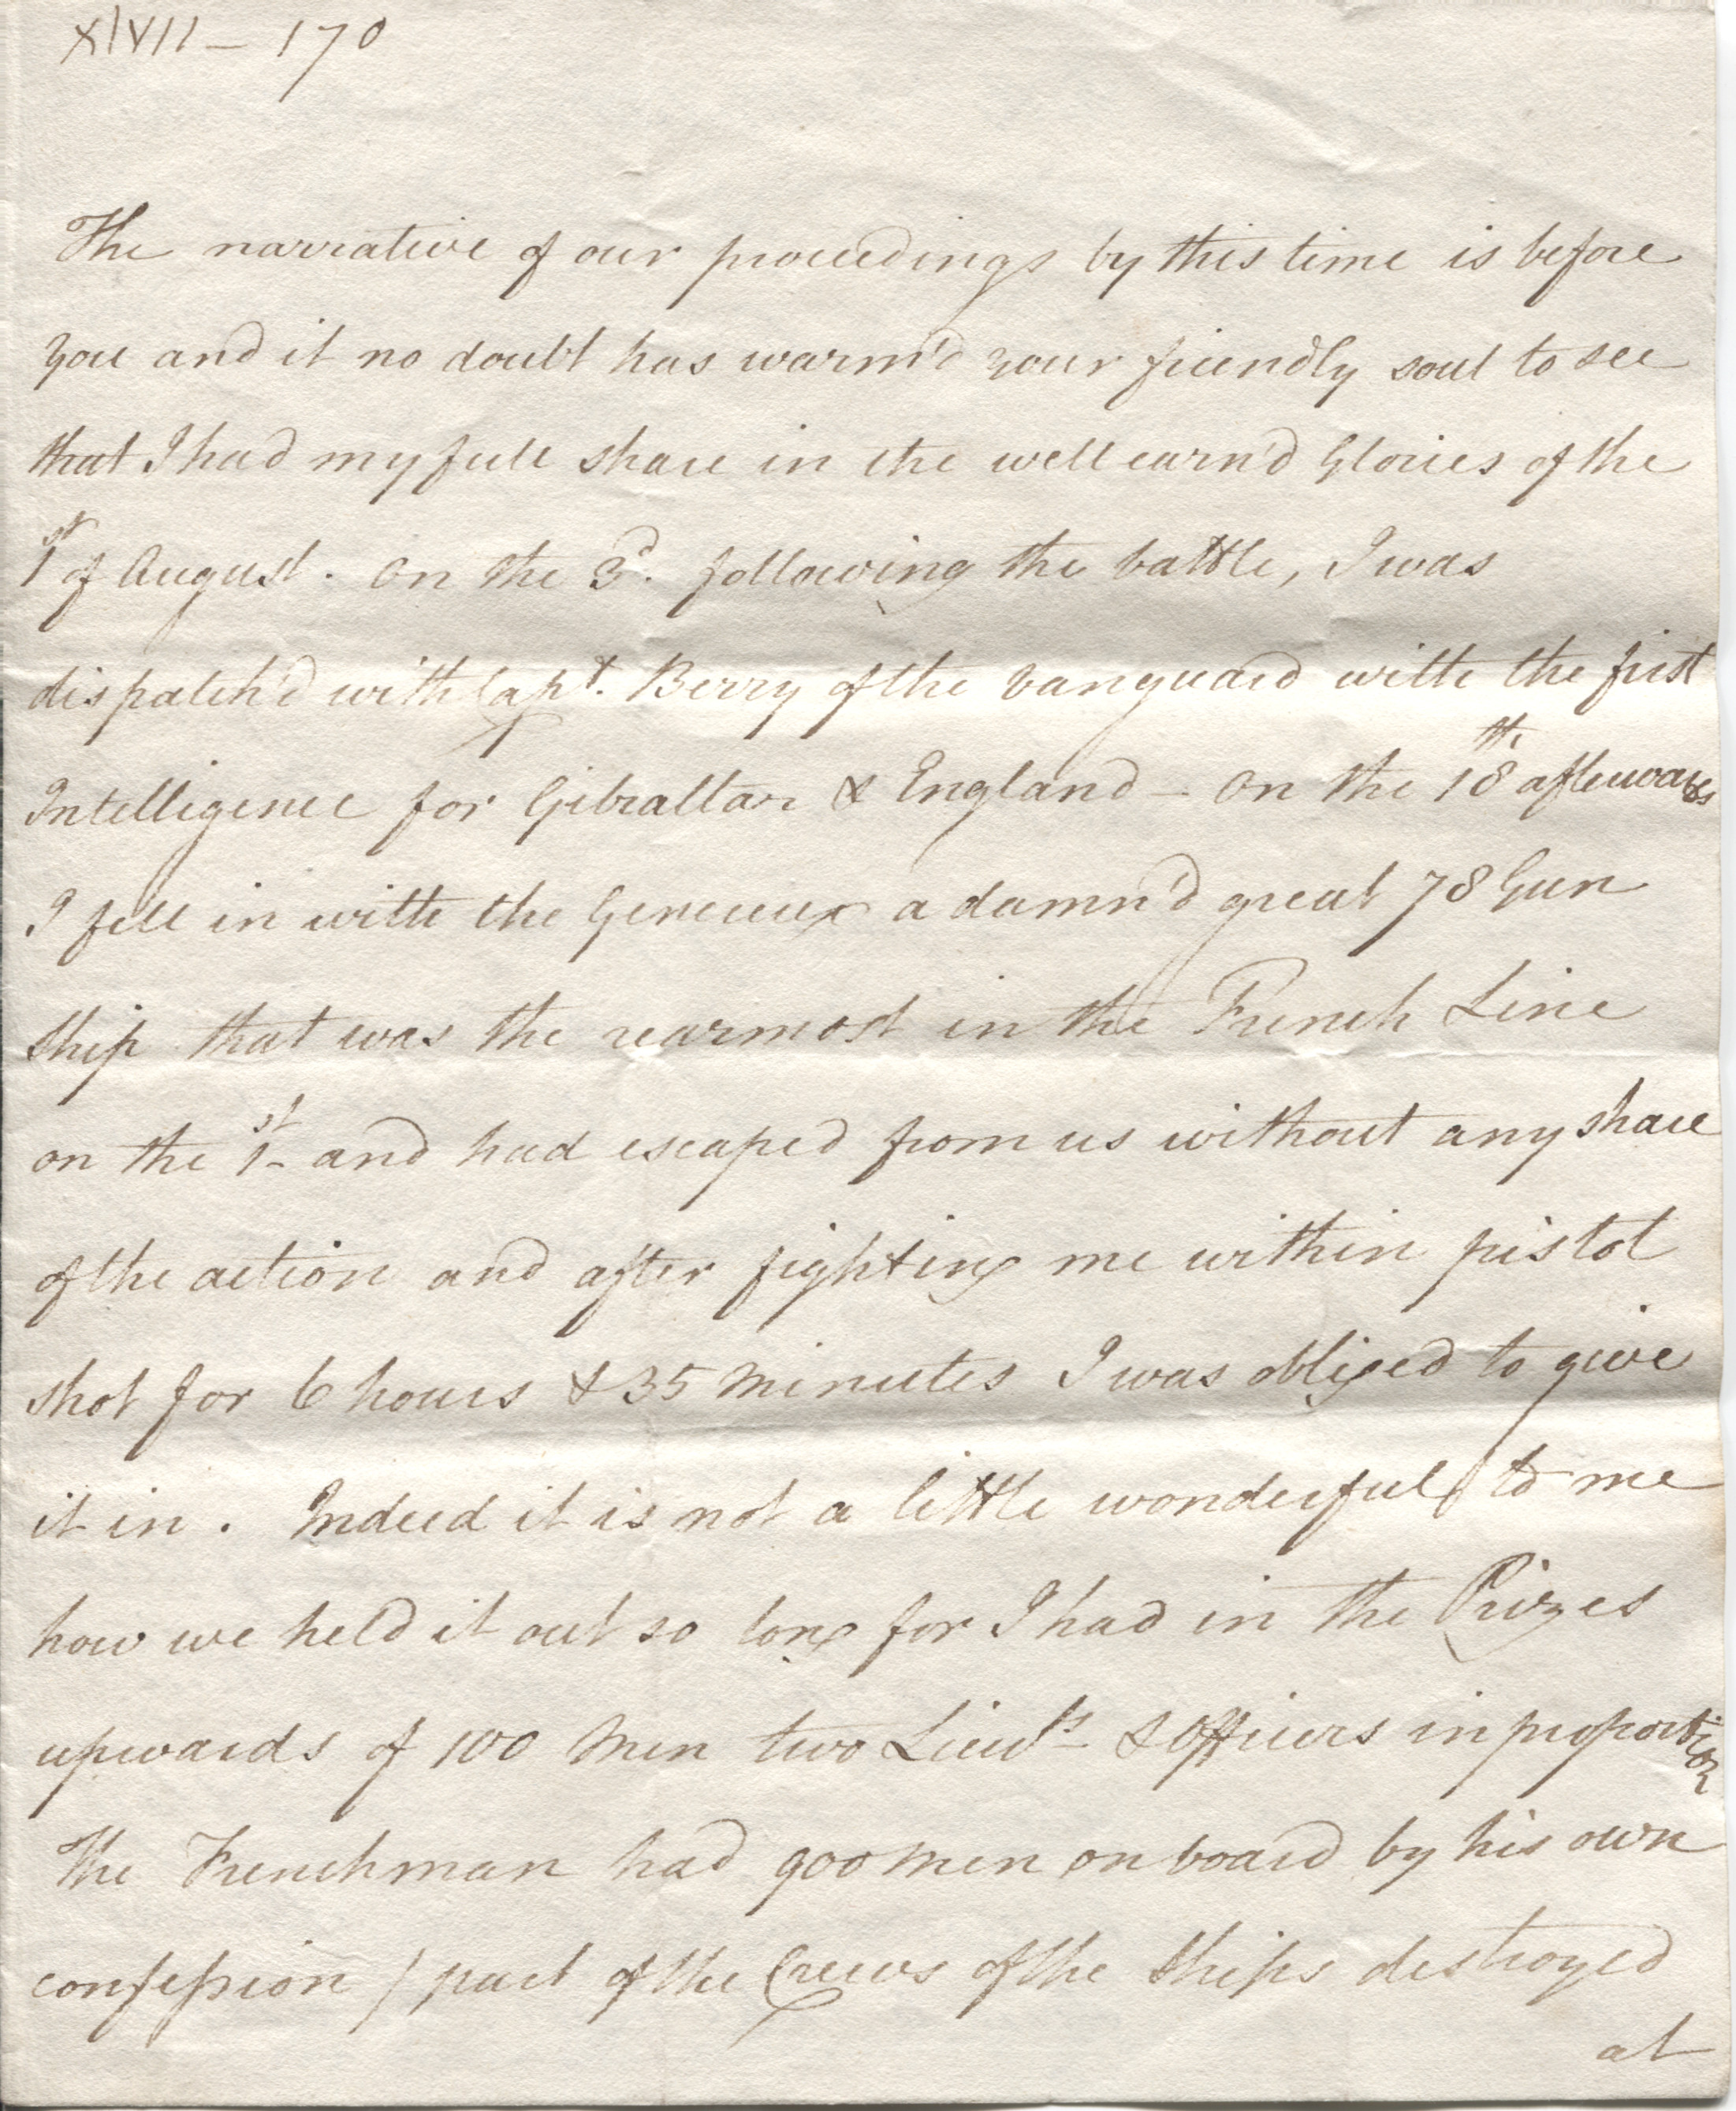 XlVII – 170
The narrative of our proceedings by this time is before
you and it no doubt has warm'd your friendly soul to see
that I had my full share in the well earn'd Glories of the
1st of August. On the 3d. following the battle, I was
dispatch'd with Capt. Berry of the Vanguard with the first
Intelligence for Gibraltar & England – On the 18th. afterwards
I fell in with the Genereux a damn'd great 78 Gun
Ship that was the rearmost in the French Line
on the 1st and had escaped from us without any share
of the action and after fighting me within pistol
shot for 6 hours & 35 Minutes I was obliged to give
it in. Indeed it is not a little wonderful to me
how we held it out so long for I had in the Prizes
upwards of 100 Men two Lieuts & Officers in proportion
The Frenchman had 900 men on board by his own
confession / part of the Crews of the Ships destroyed
at